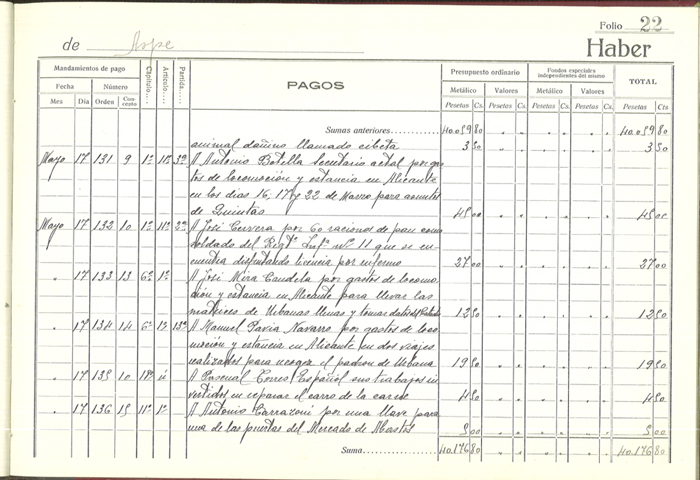 Folio 22
de Aspe
Haber
Mandamientos de pago
Fecha Número
Mes Día Orden Concepto Capítulo.... Artículo.... Partida....
PAGOS
Presupuesto ordinario
Fondos especiales independientes del mismo
TOTAL
Metálico Valores Metálico Valores
Pesetas Cs. Pesetas Cs. Pesetas Cs. Pesetas Cs. Pesetas Cts
Sumas anteriores 40.059 80 40.059 80
animal dañino llamado cibeta 3 50 3 50
Mayo 17 131 9 1º 11º 3ª A Antonio Botella Secretario actal por gas
tos de locomoción y estancia en Alicante
en los dias 16, 17 y 22 de Marzo para asuntos
de Quintas 45 00 45 00
Mayo 17 132 10 1º 11º 2ª A José Cervera por 60 raciones de pan como
soldado del Regtº Infª nº 11 que se en
cuentra disfrutando licencia por enfermo 27 00 27 00
" 17 133 13 6º 1º A José Mira Candela por gastos de locomo
ción y estancia en Alicante para llevar las
matrices de Urbanas llenas y tomar datos del 12 50 12 50
" 17 134 14 6º 1º 13ª A Manuel Pavia Navarro por gastos de loco
moción y estancia en Alicante en dos viajes
realizados para recoger el padron de Urbana 19 50 19 50
" 17 135 10 A Pascual Torres Español sus trabajos in
vertidos en reparar el carro de la carne 4 50 4 50
" 17 136 15 11º 1º A Antonio Carrazoni por una llave para
una de las puertas del Mercado de Abastos 5 00 5 00
Suma 40.176 80 40.176 80